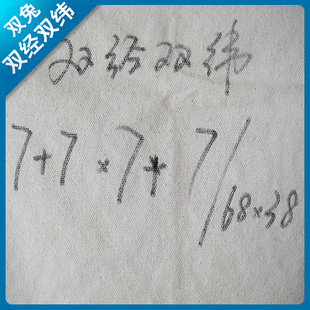 双兔
双经双纬
双经双纬
7+7×7+7/68×38